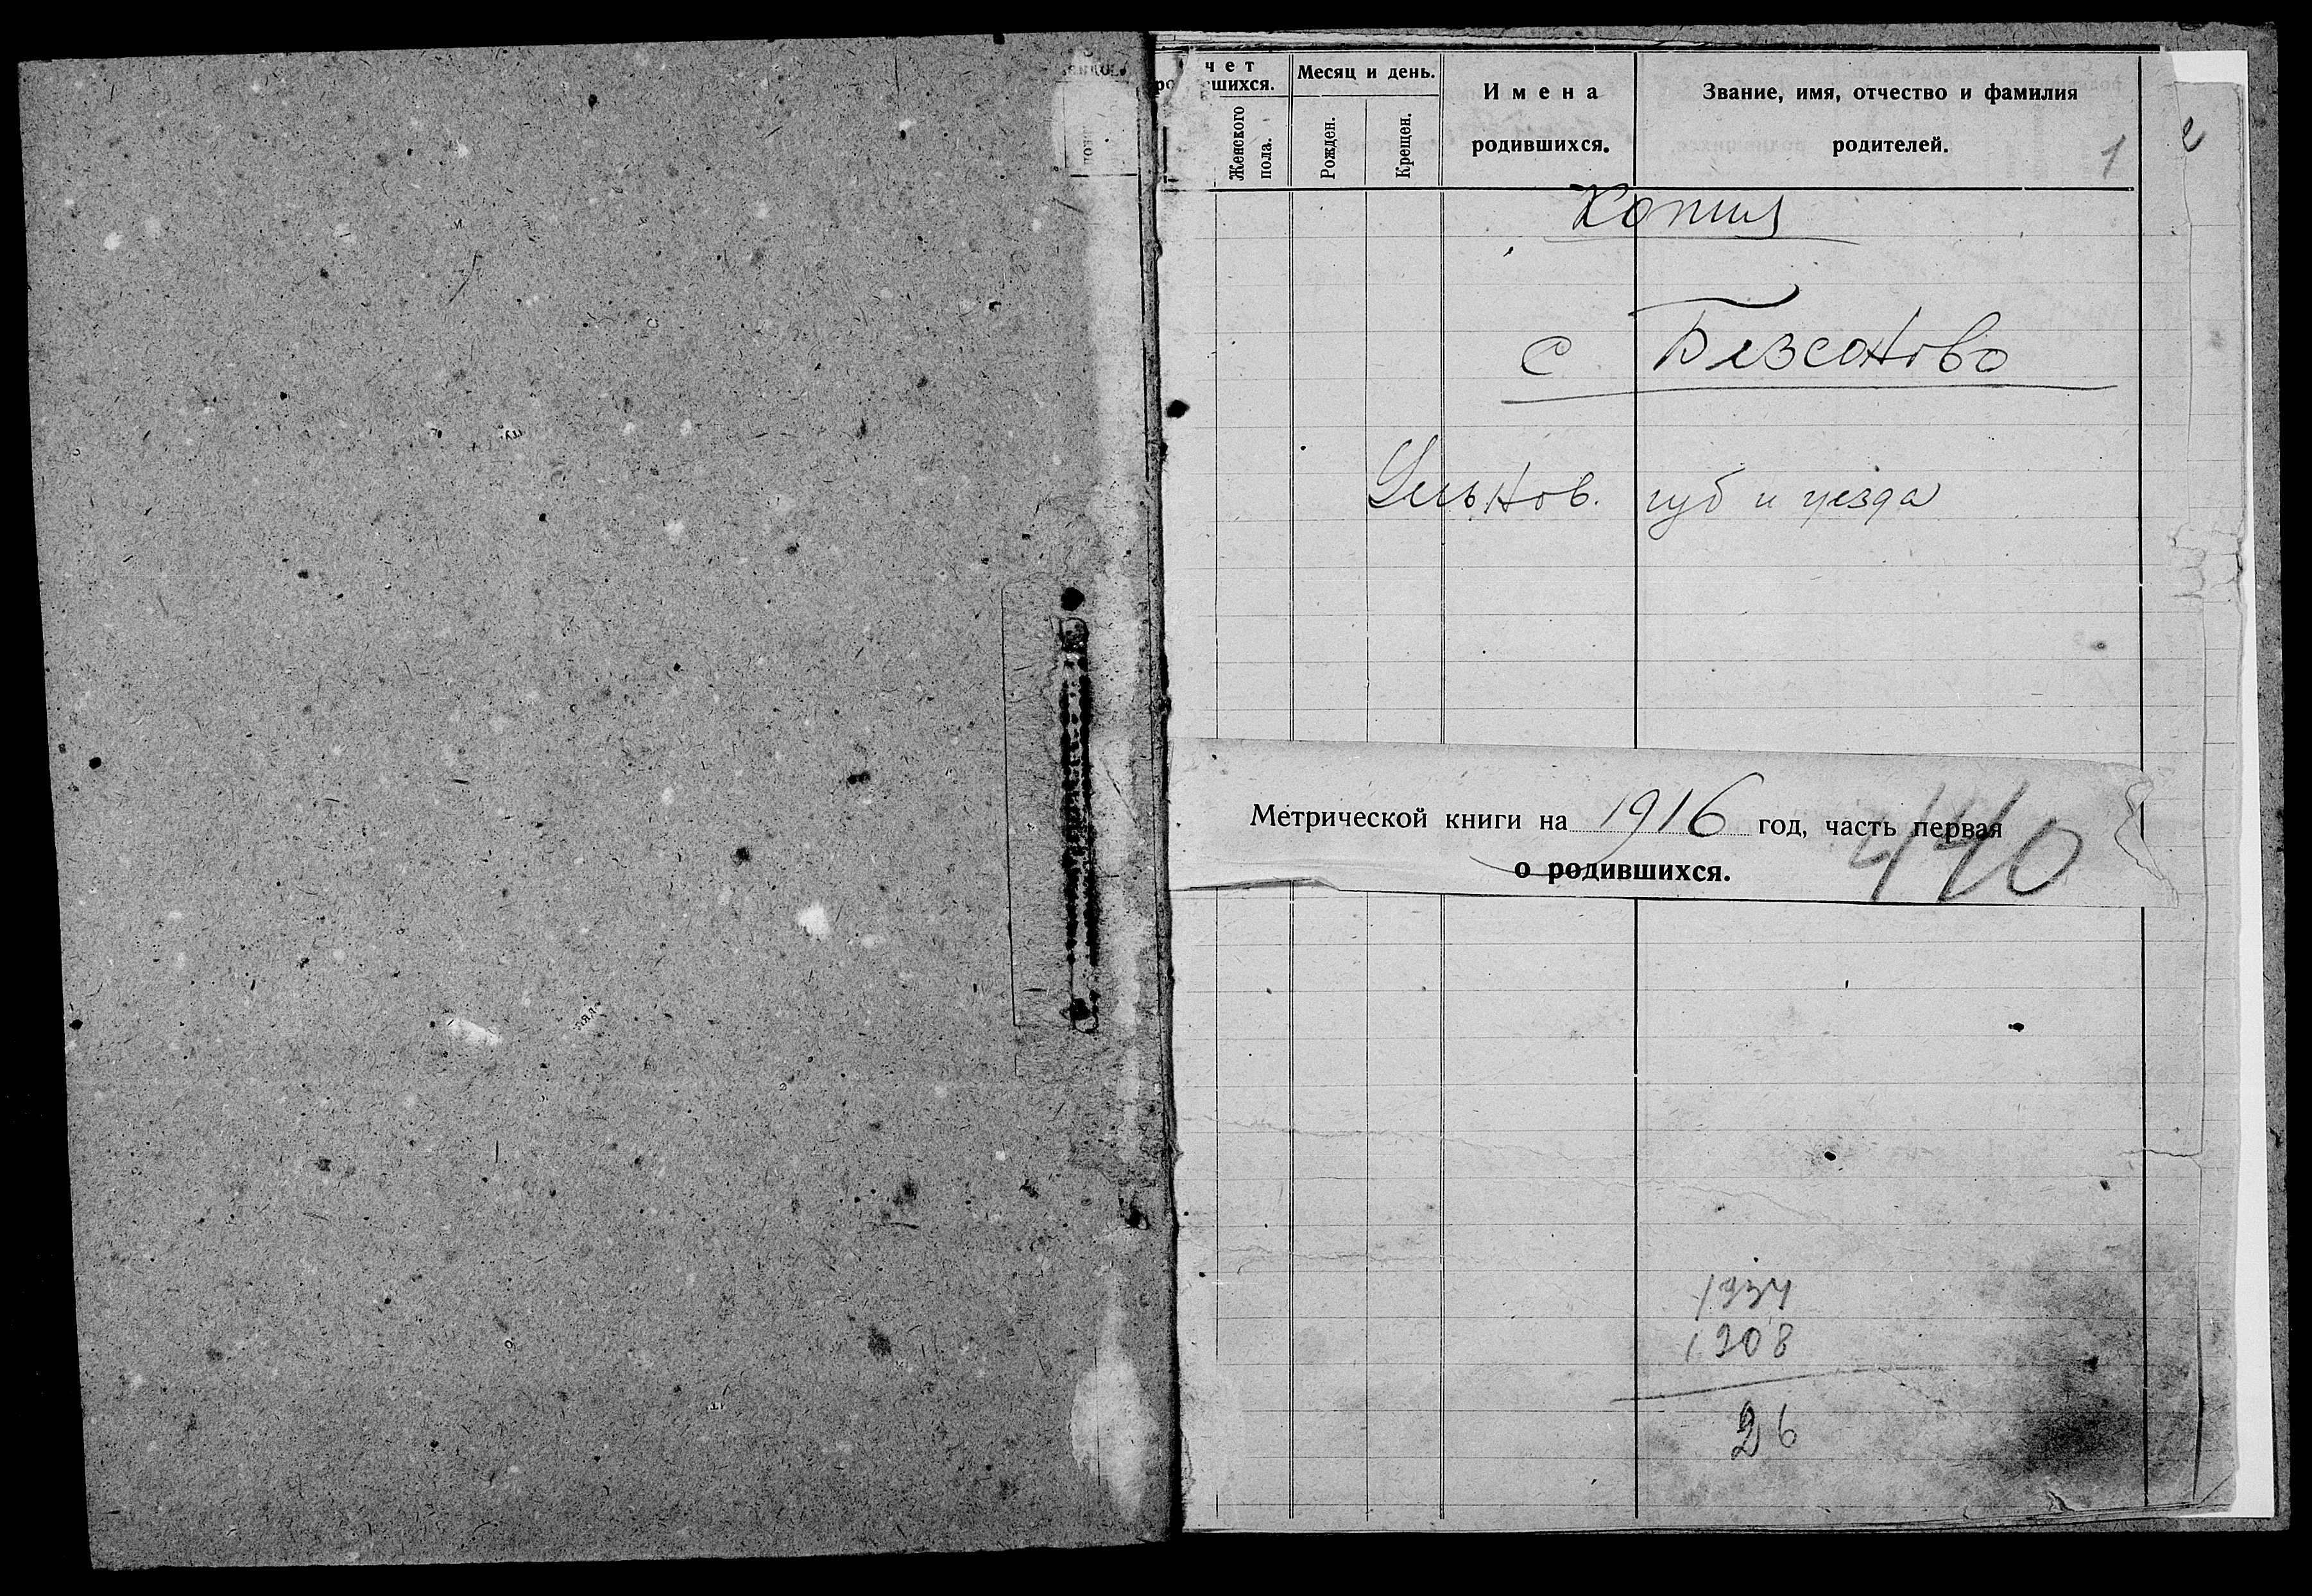 чет
шихся.
Месяц и день.
Имена
родившихся.
Звание, имя, отчество и фамилия
родителей.
Женского
пола.
Рожден.
Крещен.
1
Копия
с Безсоново
Ульнов. губ и уезда
Метрической книги на 1916 год, часть первая
о родившихся.
440
1934
1908
26